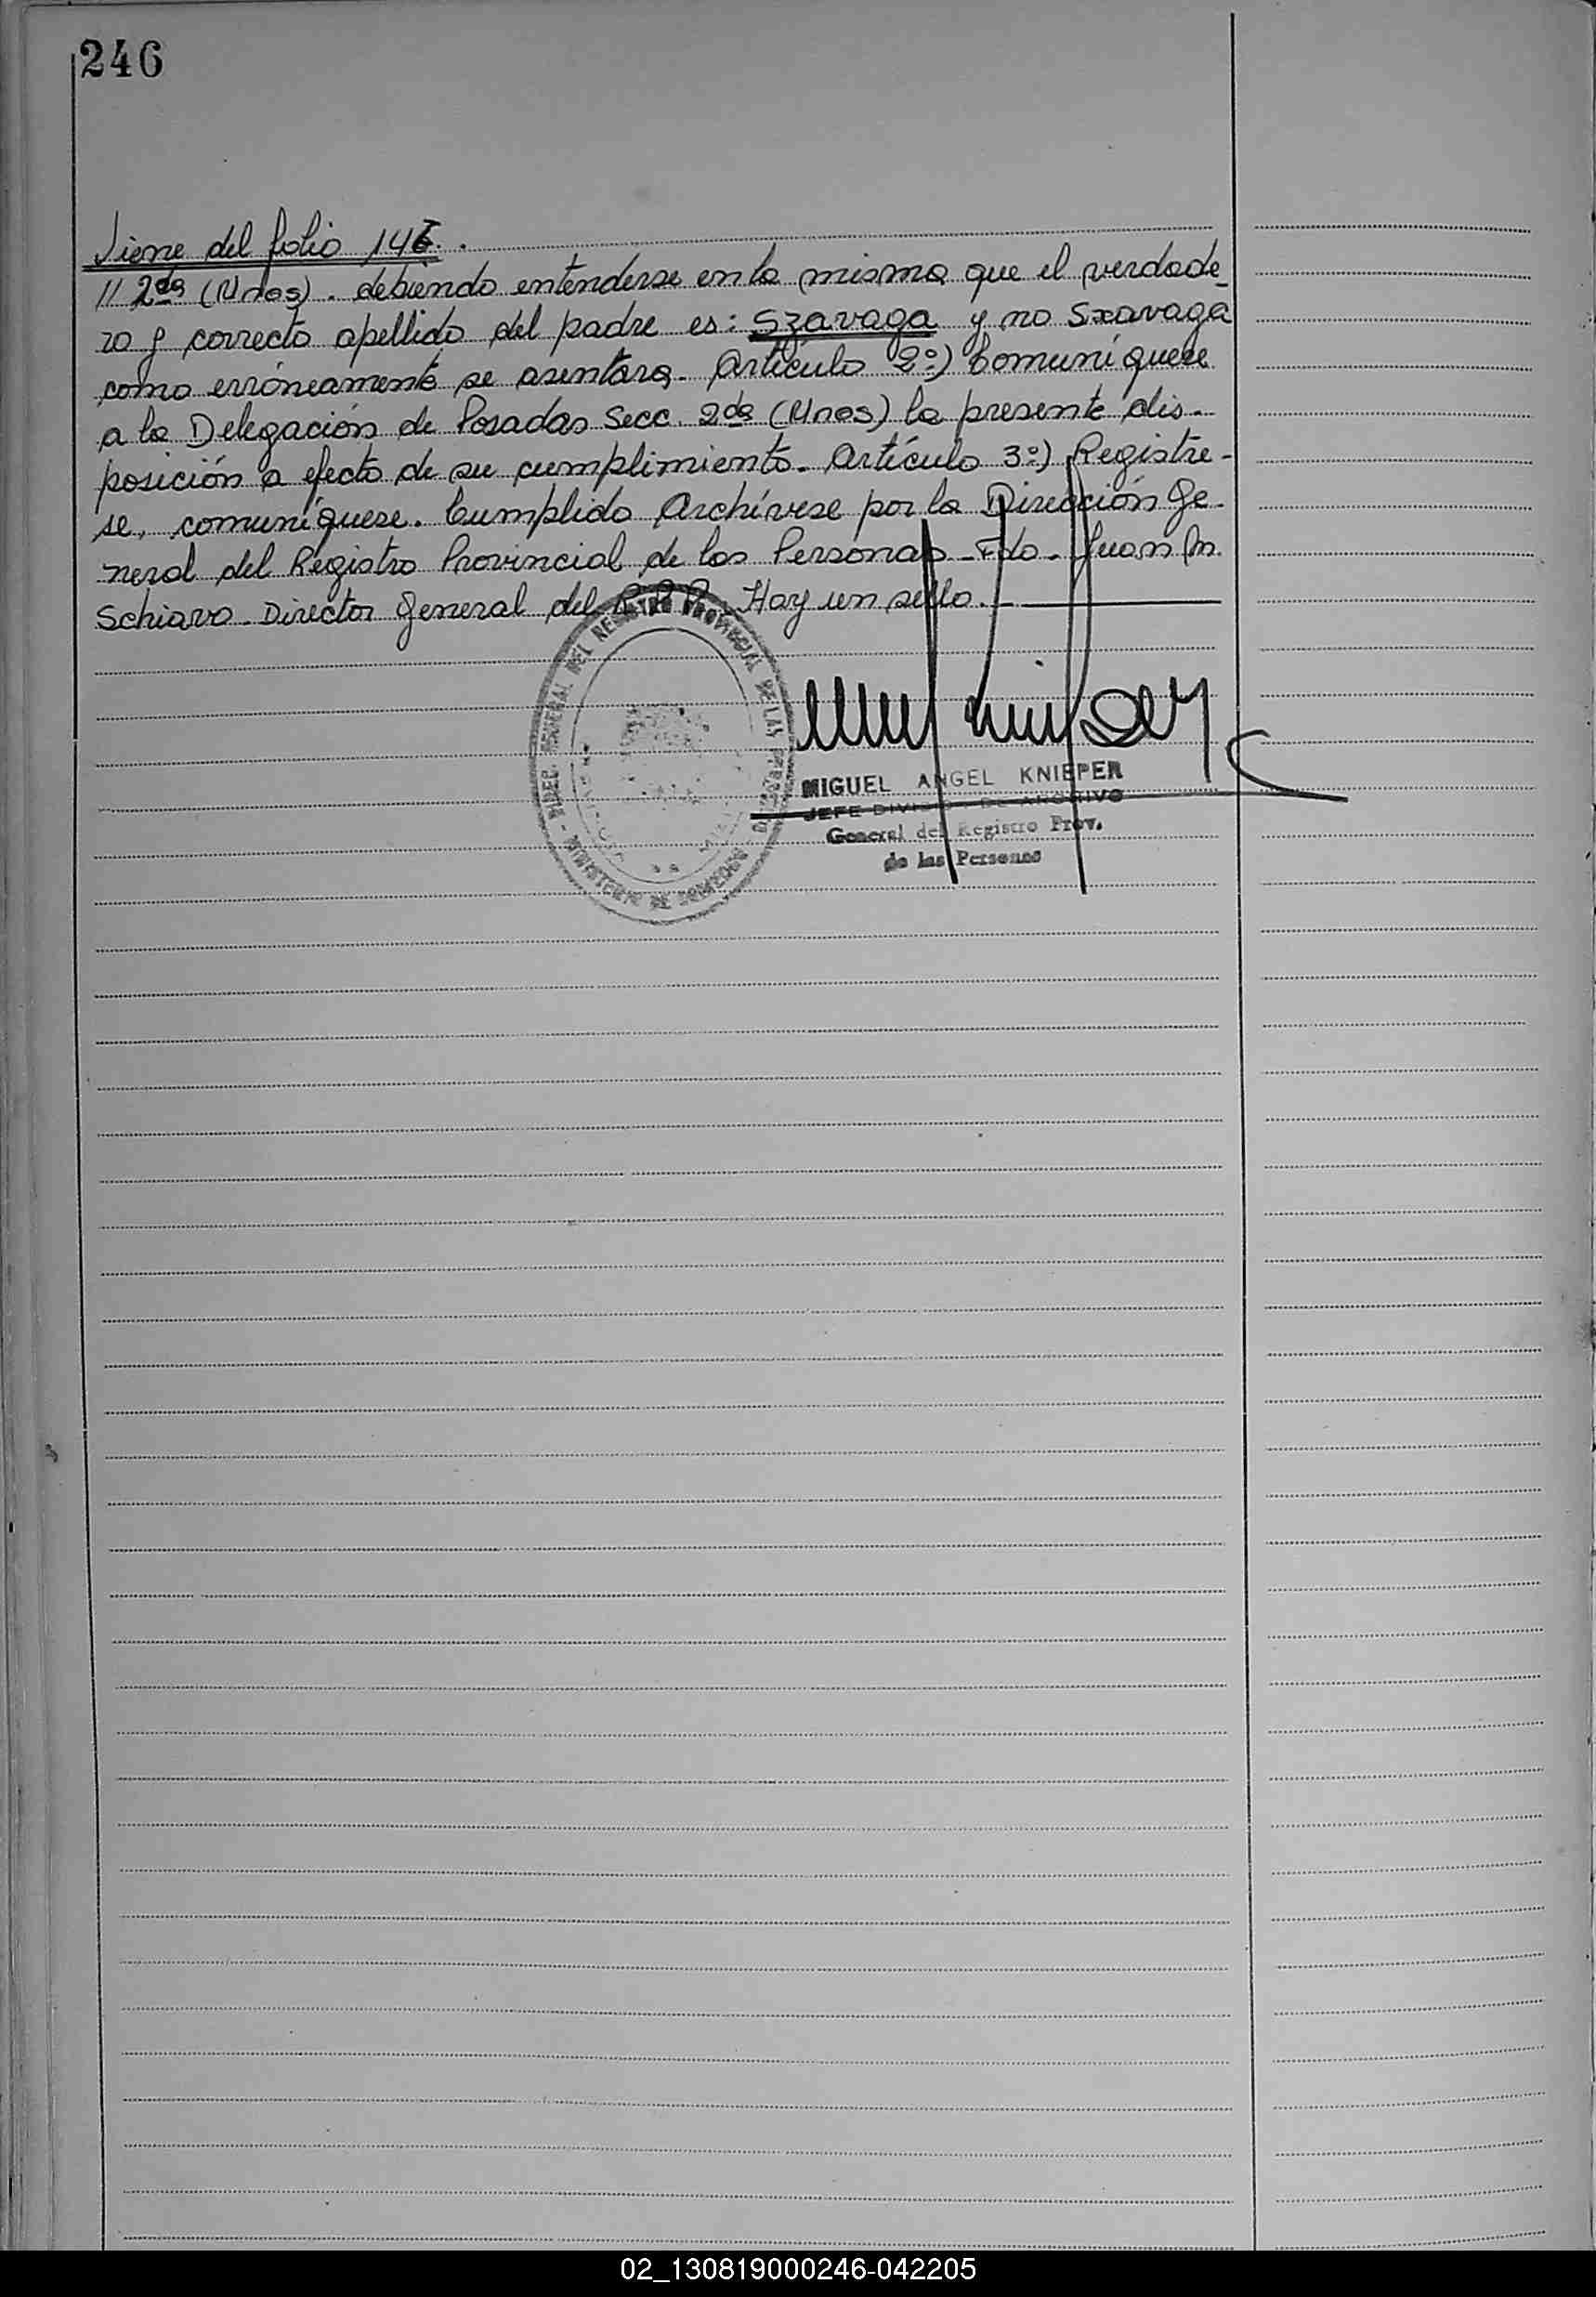 246
Viene del folio 146.
// 2da (Unos). debiendo entenderse en la misma que el verdade-
ro y correcto apellido del padre es: Szavaga y no Sxavaga
como erróneamente se asentara. Artículo 2º) Comuníquese
a la Delegación de Posadas Secc. 2da (Unos) la presente dis-
posición a efecto de su cumplimiento. Artículo 3º) Registre-
se, comuníquese. Cumplido Archívese por la Dirección Ge-
neral del Registro Provincial de las Personas. Fdo. Juan M.
Schiavo. Director General del R.P.P. Hay un sello.
MIGUEL ANGEL KNIEPER
JEFE DIVISION DE ARCHIVO
General del Registro Prov.
de las Personas
DIREC. GENERAL DEL REGISTRO PROVINCIAL DE LAS PERSONAS - MINISTERIO DE GOBIERNO
02_130819000246-042205